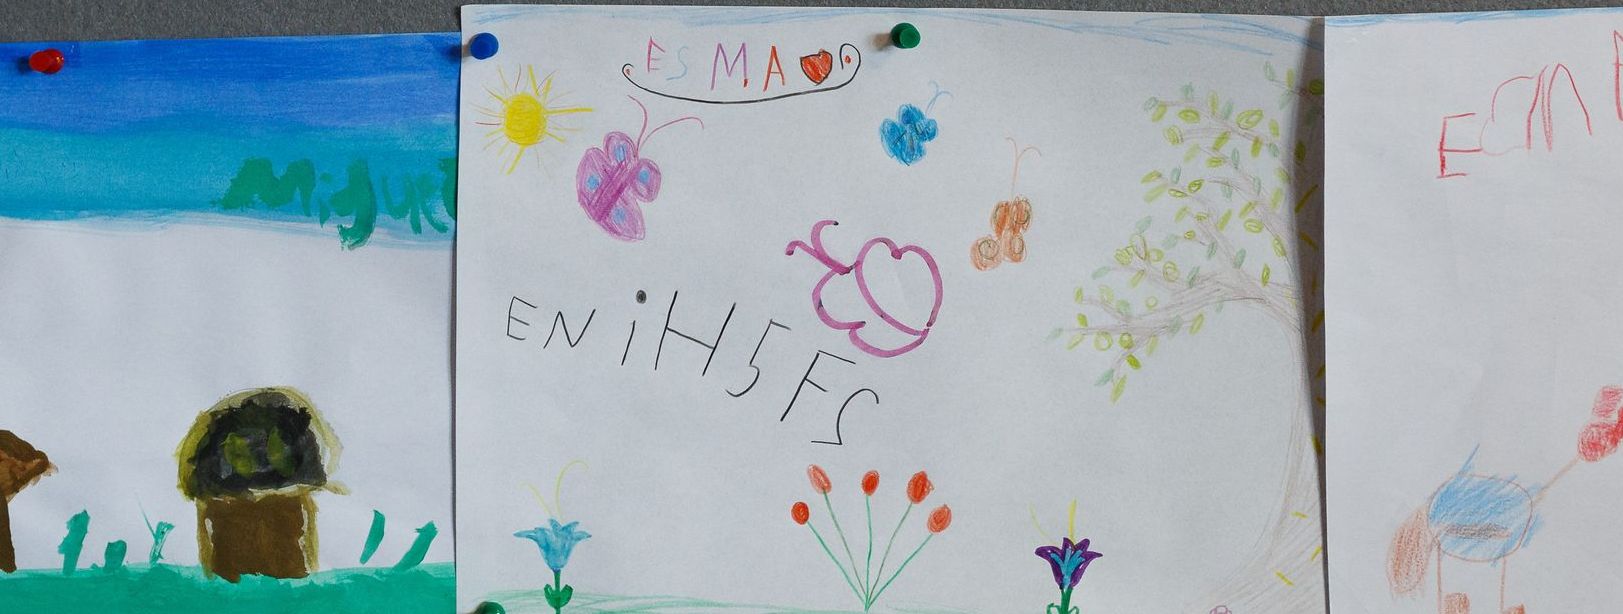 Miguel
ESMA
ENiH5FS